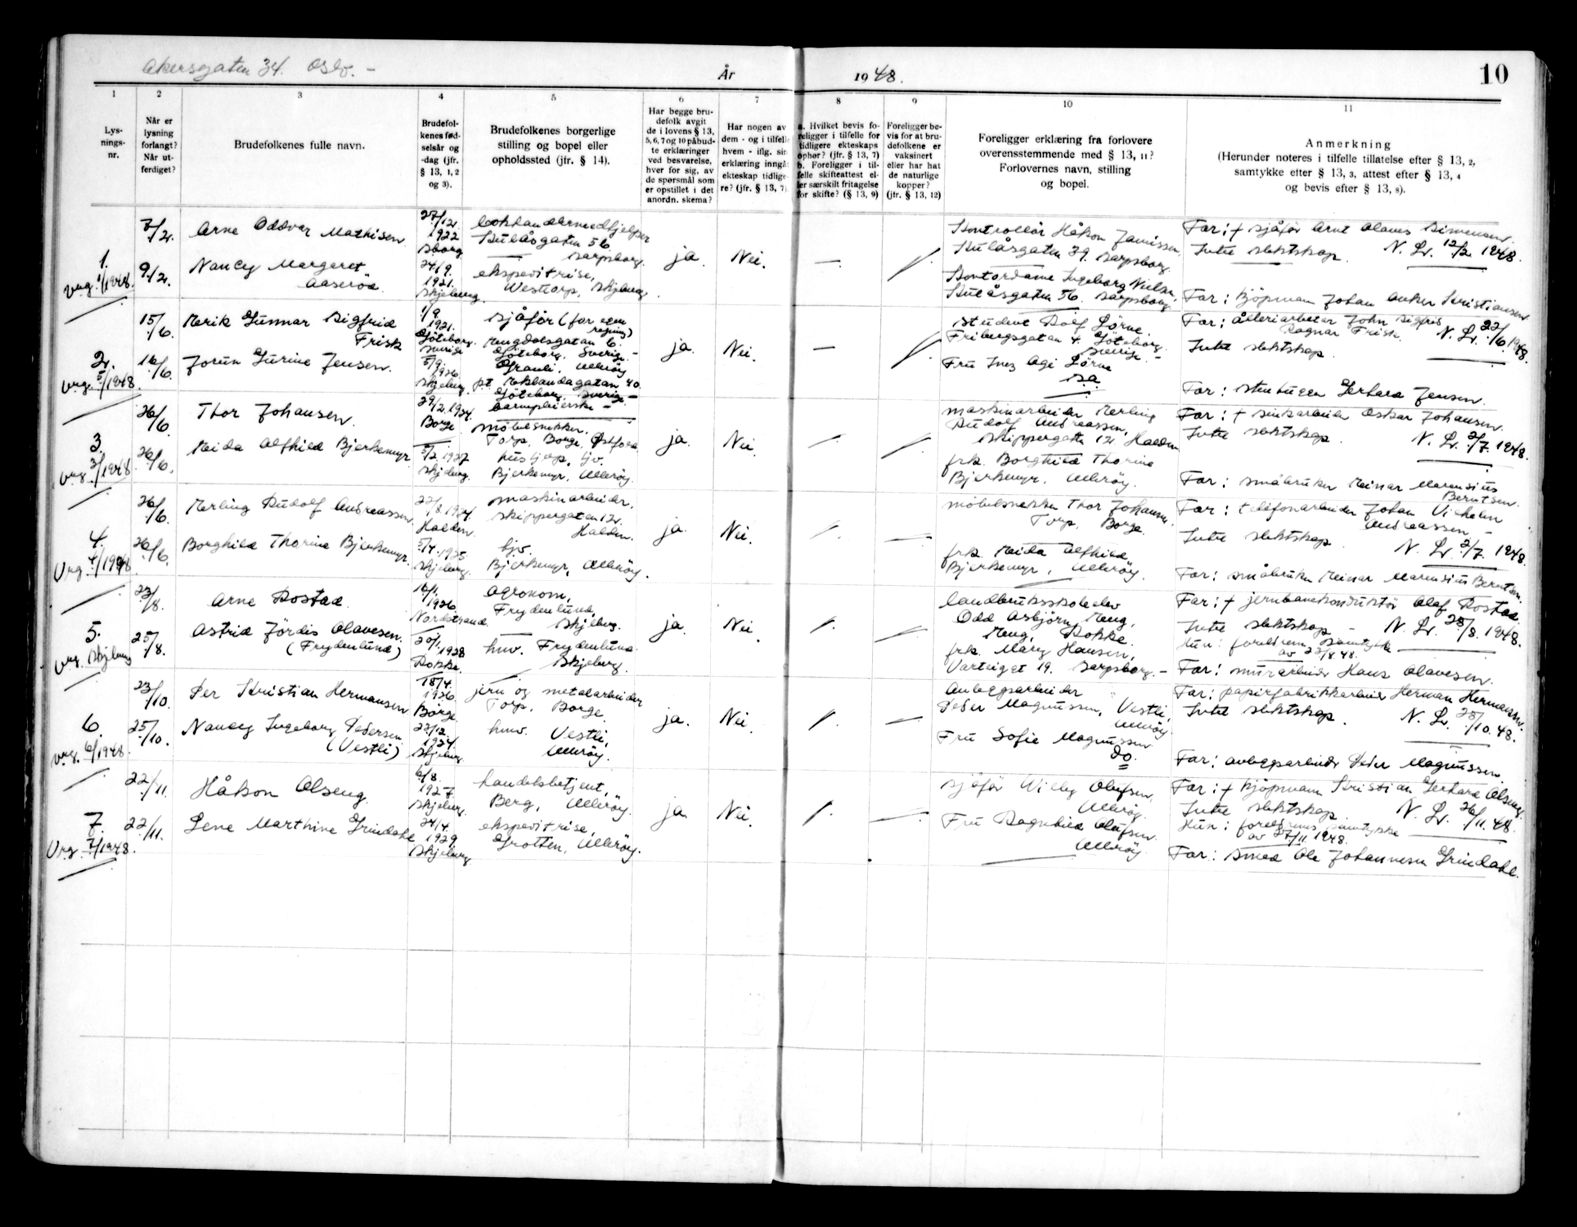 Akersgaten 34. Oslo. -
År 1948.
10
1
Lysnings-nr.
2
Når er lysning forlangt? Når utferdiget?
3
Brudefolkenes fulle navn.
4
Brudefolkenes fødselsår og -dag (jfr. § 13, 1, 2 og 3).
5
Brudefolkenes borgerlige stilling og bopel eller opholdssted (jfr. § 14).
6
Har begge brudefolk avgit de i lovens § 13, 5, 6, 7 og 10 påbudte erklæringer ved besvarelse, hver for sig, av de spørsmål som er opstillet i det anordn. skema?
7
Har nogen av dem - og i tilfelle hvem - iflg. sin erklæring inngått ekteskap tidligere? (jfr. § 13, 7)
8
a. Hvilket bevis foreligger i tilfelle for tidligere ekteskaps ophør? (jfr. § 13, 7)
b. Foreligger i tilfelle skifteattest eller særskilt fritagelse for skifte? (§ 13, 9)
9
Foreligger bevis for at brudefolkene er vaksinert eller har hat de naturlige kopper? (jfr. § 13, 12)
10
Foreligger erklæring fra forlovere overensstemmende med § 13, 11? Forlovernes navn, stilling og bopel.
11
Anmerkning
(Herunder noteres i tilfelle tillatelse efter § 13, 2, samtykke efter § 13, 3, attest efter § 13, 4 og bevis efter § 13, 8).
1.
Vrg. 1/1948.
7/2.
Arne Oddvar Mathisen
27/12. 1922 Sborg
Kulåsgaten 56 Sarpsborg.
9/2.
Nancy Margaret Aaserød
24/9. 1921. Skjeberg
ekspeditrise, Westorp, Skjeberg.
ja.
Nei.
Kontrollør Håkon
Kulåsgaten 39. Sarpsborg.
Kontordame Ingeborg
Kulåsgaten 56. Sarpsborg
Far: † sjåfør Arnt Olaves Simensen.
Intet slektskap. N. Lr. 12/2 1948.
Far: kjøpmann Johan Anker Kristiansen
2.
Vrg. 2/1948.
15/6.
Erik Gunnar Sigfrid Frisk
1/9 1921. Göteborg. Sverige
sjåfør (for egen regning)
Göteborg. Sverige. -
16/6.
Jorun Gurine Jensen.
5/9. 1926 Skjeberg.
Grauli, Ullerøy
pt. Eklandagatan 40.
Göteborg. Sverige -
barnepleierske -
ja.
Nei.
student Rolf Lörne.
Fribergsgatan 4 Göteborg Sverige -
Fru Inez Agi Lörne
s.a.
Far: åkeriarbetar John Sigfrid Ragnar Frisk.
Intet slektskap. N. Lr. 22/6 1948.
Far: stenhugger Gerhard Jensen.
3.
Vrg. 3/1948
26/6
Thor Johansen.
29/2. 1924. Borge
møbelsnekker. Torp, Borge, Østfold
26/6.
Reida Alfhild Bjerkemyr
5/2. 1927 Skjeberg.
hushjelp, hjv. Bjerkemyr, Ullerøy.
ja.
Nei.
maskinarbeider Erling Rudolf Andreassen,
Skippergaten 12 Halden
frk. Borghild Thorine Bjerkemyr, Ullerøy.
Far: † snikarbeider Oskar Johansen.
Intet slektskap. N. Lr. 2/7. 1948.
Far: småbruker Reinar Marensius Berntsen.
4.
Vrg. 4/1948
26/6.
Erling Rudolf Andreassen
22/8. 1924. Halden
maskinarbeider. Skippergaten 12. Halden.
26/6.
Borghild Thorine Bjerkemyr.
5/4. 1925 Skjeberg.
hjv. Bjerkemyr, Ullerøy.
ja
Nei.
møbelsnekker Thor Johansen. Torp. Borge
frk. Reida Alfhild Bjerkemyr, Ullerøy.
Far: telefonarbeider Johan Vilhelm Andreassen -
Intet slektskap. N. Lr. 2/7. 1948
Far: småbruker Reinar Marensius Berntsen.
5.
Vrg. Skjeberg
23/8.
Arne Rostad.
16/1. 1926 Nordstrand
agronom, Frydenlund, Skjeberg.
25/8.
Astrid Jördis Olavesen. (Frydenlund)
20/1. 1928 Rokke
hmv. Frydenlund Skjeberg.
ja.
Nei.
landbruksskoleelev Odd Asbjørn Meng, Meng, Rokke
frk. Mary Hansen, Varteiget 19. Sarpsborg. -
Far: † jernbanekonduktør Olaf Rostad.
Intet slektskap - N. Lr. 28/8. 1948.
Hun: foreldrenes samtykke av 23/8 48.
Far: murarbeider Hans Olavesen.
6.
vrg. 6/1948.
23/10.
Per Kristian Hermansen
18/4. 1926. Borge
jern og metalarbeider Torp, Borge.
25/10.
Nancy Ingeborg Pedersen (Vestli)
22/12. 1924. Skjeberg
hmv. Vestli, Ullerøy.
ja.
Nei.
anleggsarbeider Peder Magnussen, Vestli, Ullerøy.
Fru Sofie Magnussen
Do.
Far: papirfabrikkarbeider Herman Hermansen.
Intet slektskap. N. Lr. 25/10. 48.
Far: anleggsarbeider Peder Magnussen.
7.
Vrg. 7/1948.
22/11.
Håkon Olseng.
6/8. 1927. Skjeberg.
handelsbetjent, Berg, Ullerøy.
22/11.
Lene Marthine Grindahl
24/4. 1929. Skjeberg
ekspeditrise, Grotten, Ullerøy.
ja
Nei.
sjåfør Willy Olufsen, Ullerøy.
Fru Ragnhild Olufsen. Ullerøy
Far: † kjøpmann Kristian Gerhard Olseng.
Intet slektskap. N. Lr. 26/11. 48.
Hun: foreldrenes samtykke av 27/11 1948.
Far: smed Ole Johannesen Grindahl.